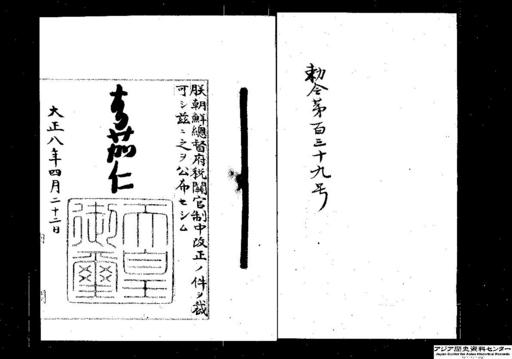 勅令第百三十九号
朕朝鮮總督府税關官制中改正ノ件ヲ裁
可シ茲ニ之ヲ公布セシム
嘉仁
天皇
御璽
大正八年四月二十二日
アジア歴史資料センター
Japan Center for Asian Historical Records